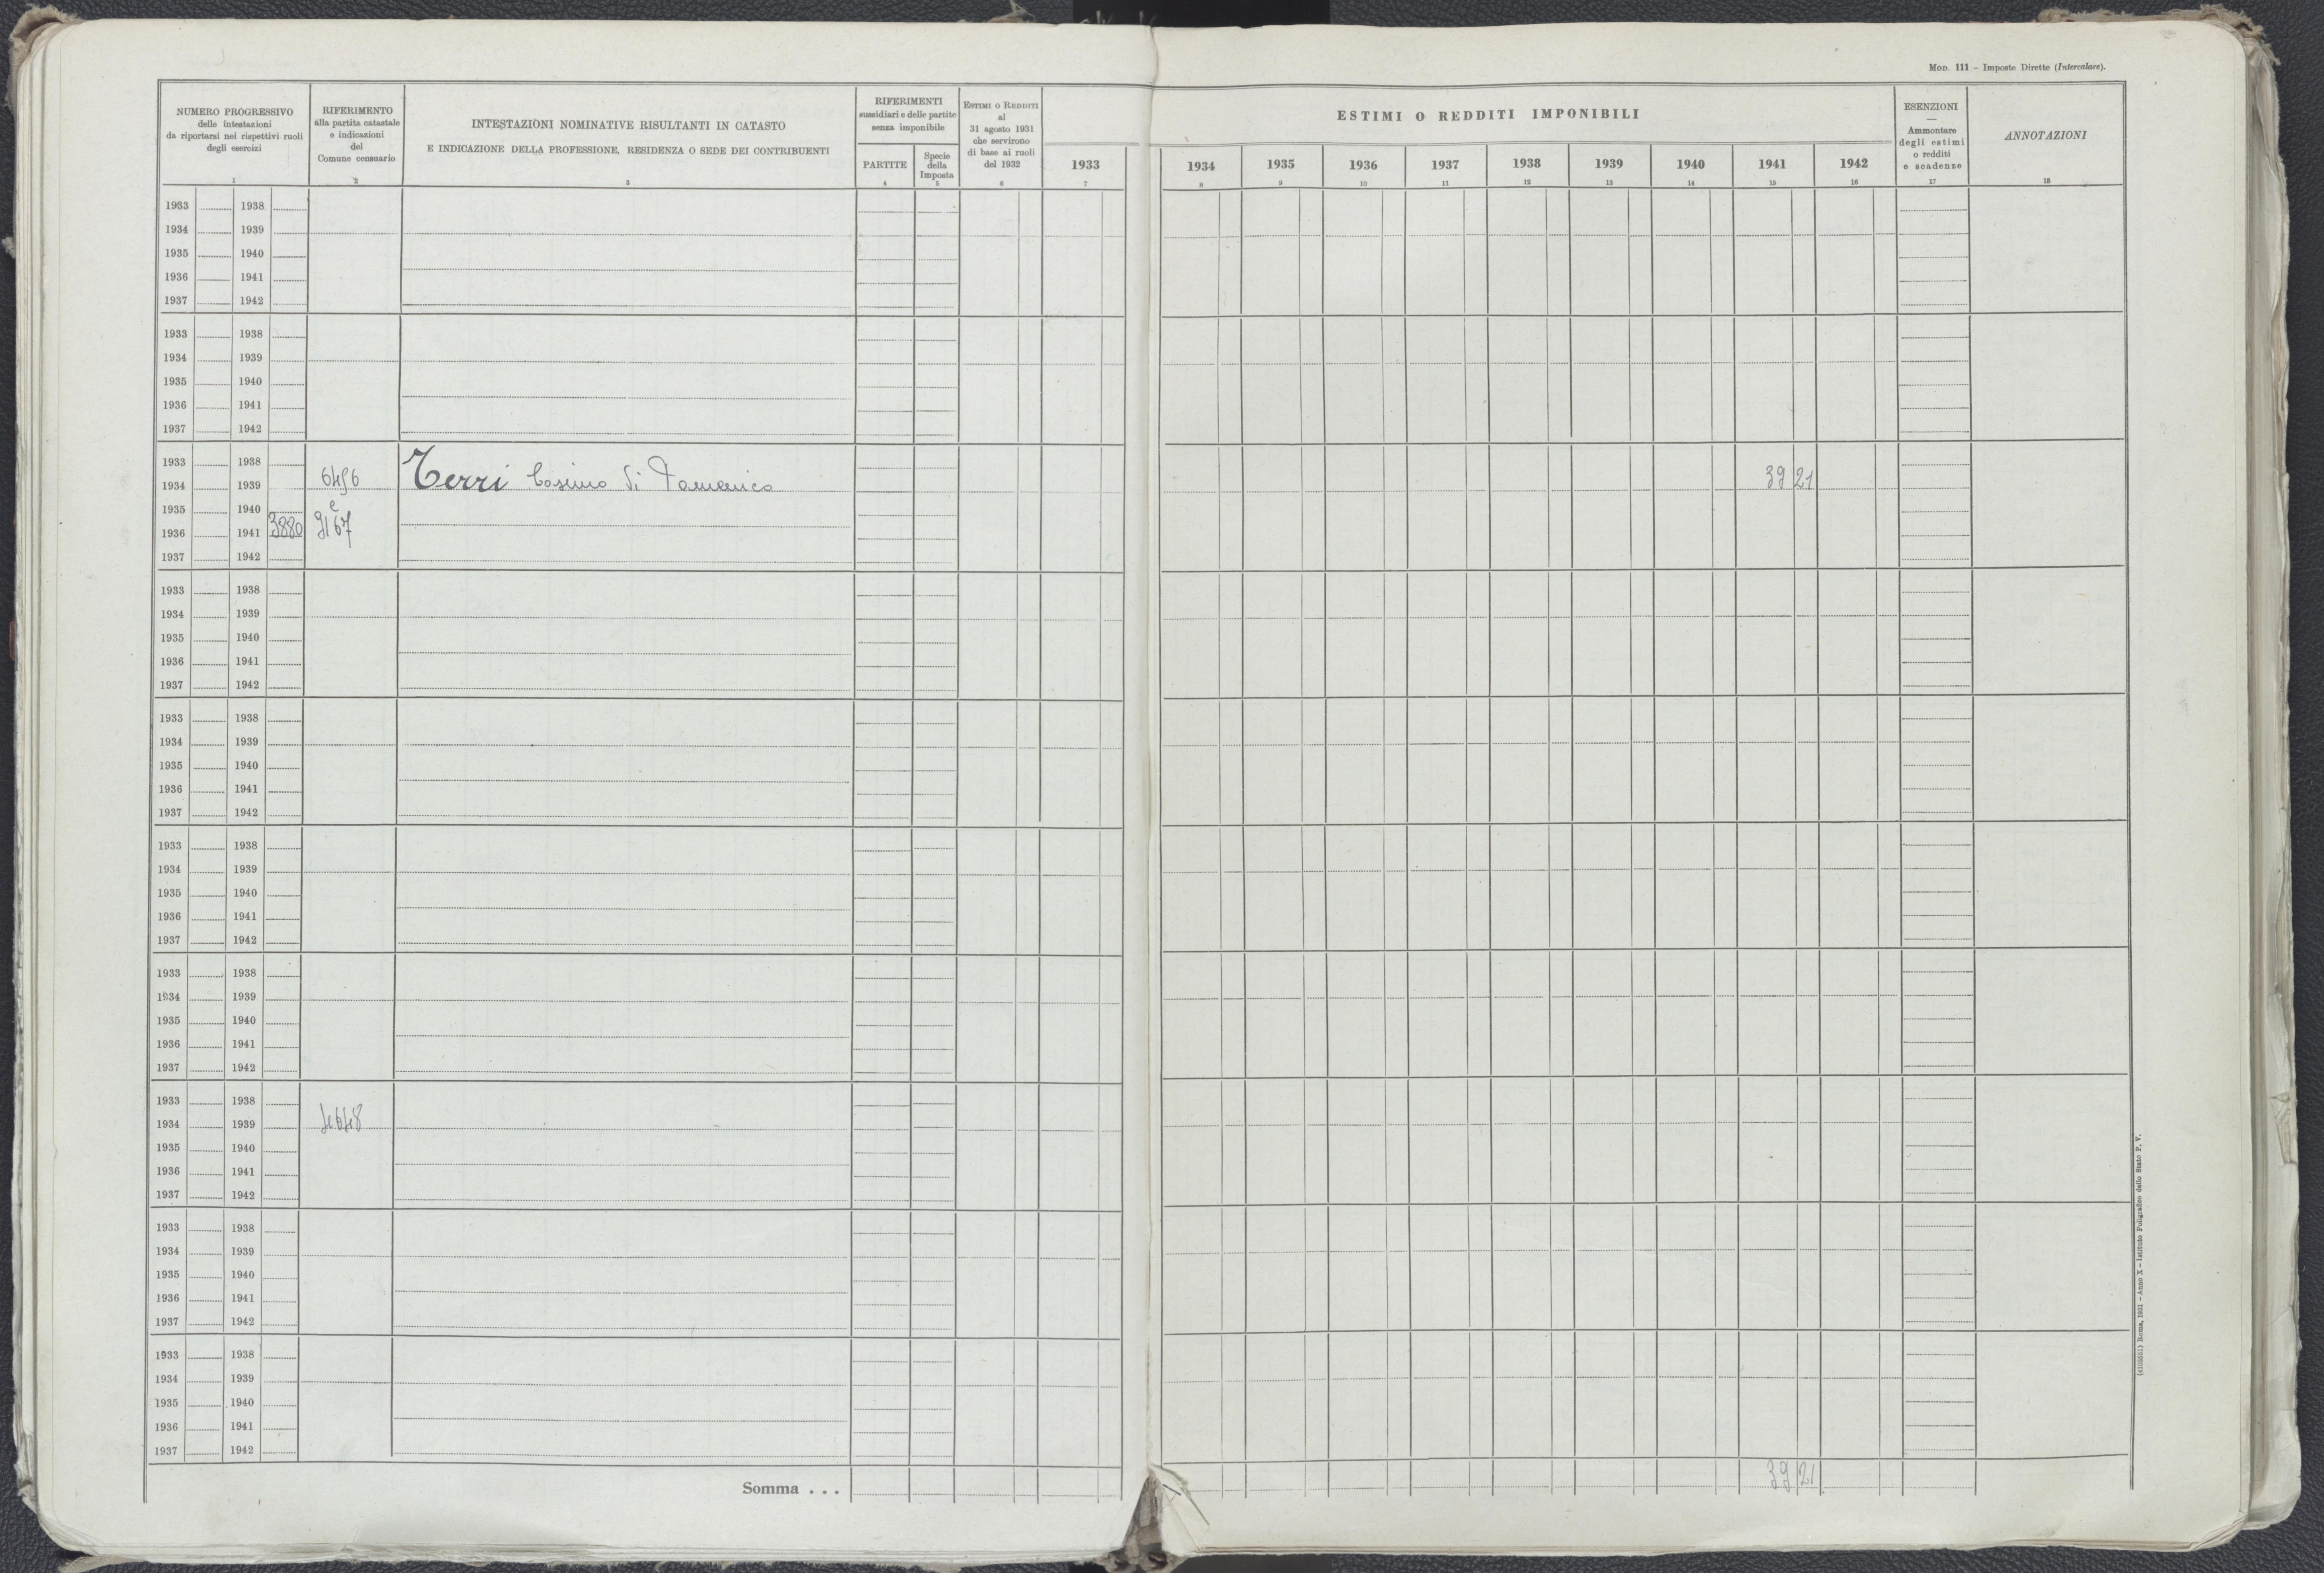 Mod. 111 – Imposte Dirette (Intercalare).
NUMERO PROGRESSIVO
delle intestazioni
da riportarsi nei rispettivi ruoli
degli esercizi
1
RIFERIMENTO
alla partita catastale
e indicazioni
del
Comune censuario
2
INTESTAZIONI NOMINATIVE RISULTANTI IN CATASTO
E INDICAZIONE DELLA PROFESSIONE, RESIDENZA O SEDE DEI CONTRIBUENTI
3
RIFERIMENTI
sussidiari e delle partite
senza imponibile
PARTITE
4
Specie
della
Imposta
5
Estimi o Redditi
al
31 agosto 1931
che servirono
di base ai ruoli
del 1932
6
ESTIMI O REDDITI IMPONIBILI
1933 1934 1935 1936 1937 1938 1939 1940 1941 1942
7 8 9 10 11 12 13 14 15 16
ESENZIONI
—
Ammontare
degli estimi
o redditi
e scadenze
17
ANNOTAZIONI
18
1933 1938
1934 1939
1935 1940
1936 1941
1937 1942
1933 1938
1934 1939
1935 1940
1936 1941
1937 1942
1933 1938
1934 1939 Terri Cosimo di Domenico 39 21
1935 1940 e
1936 1941 3880 9167
1937 1942
1933 1938
1934 1939
1935 1940
1936 1941
1937 1942
1933 1938
1934 1939
1935 1940
1936 1941
1937 1942
1933 1938
1934 1939
1935 1940
1936 1941
1937 1942
1933 1938
1934 1939
1935 1940
1936 1941
1937 1942
1933 1938
1934 1939 4648
1935 1940
1936 1941
1937 1942
1933 1938
1934 1939
1935 1940
1936 1941
1937 1942
1933 1938
1934 1939
1935 1940
1936 1941
1937 1942
Somma . . . 39 21
(4103551) Roma, 1931 – Anno X – Istituto Poligrafico dello Stato P. V.